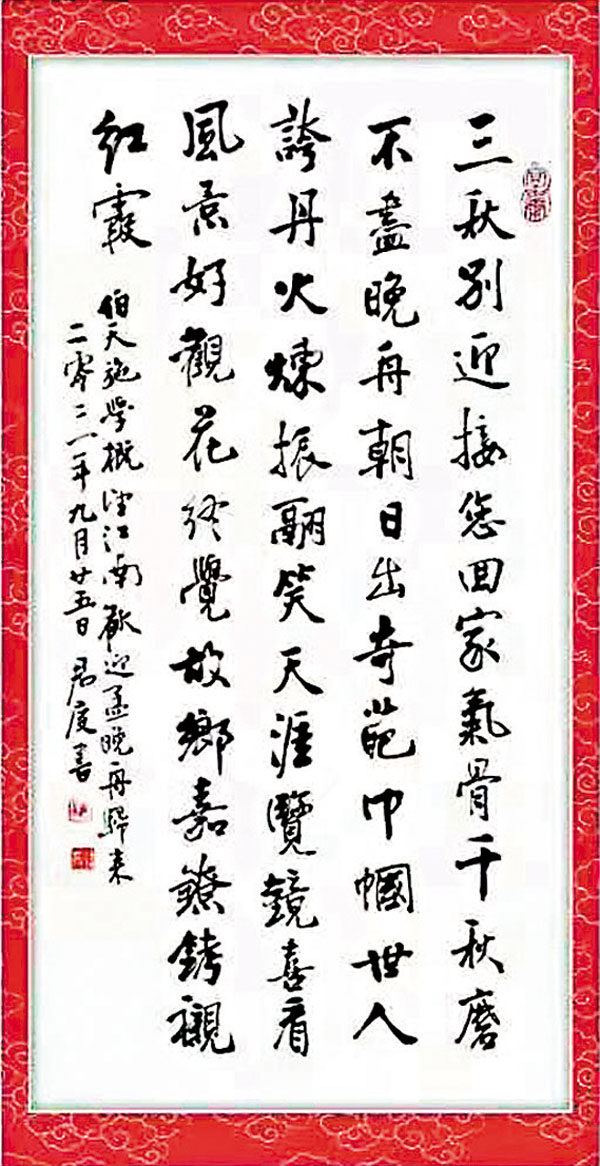 三秋别迎接您回家氣骨千秋磨
不盡晚舟朝日出奇葩巾幗世人
誇丹火煉振翮笑天涯覽鏡喜看
風景好觀花終覺故鄉嘉鐐銬襯
紅霞
伯天施學概望江南歡迎孟晚舟歸来
二零二一年九月廿五日 君度書